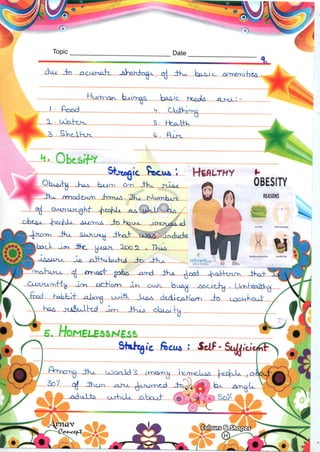 Topic Date
9.
due to acurate shortage of the basic amenities.
Human beings basic needs are:-
1. Food 4. Clothing
2. Water 5. Health
3. Shelter 6. Air
4. Obesity
Strategic Focus : HEALTHY
OBESITY
REASONS
Obesity has been on the rise
the modern times. The numbers
of overweight people as well as
obese people seems to have increased
from the survey that was
back in the year 2002. This
issue is attributed to the
nature of most jobs and the food pattern that
currently in action in our busy society. Unhealthy
Food habbit along with less dedication to workout
has resulted in this obesity.
5. HOMELESSNESS
Stategic Focus : Self - Sufficient
Among the world's many homeless people, about
30% of them are formed to be single
adults while about 50%
Arnav
Concept
Colours & Shapes